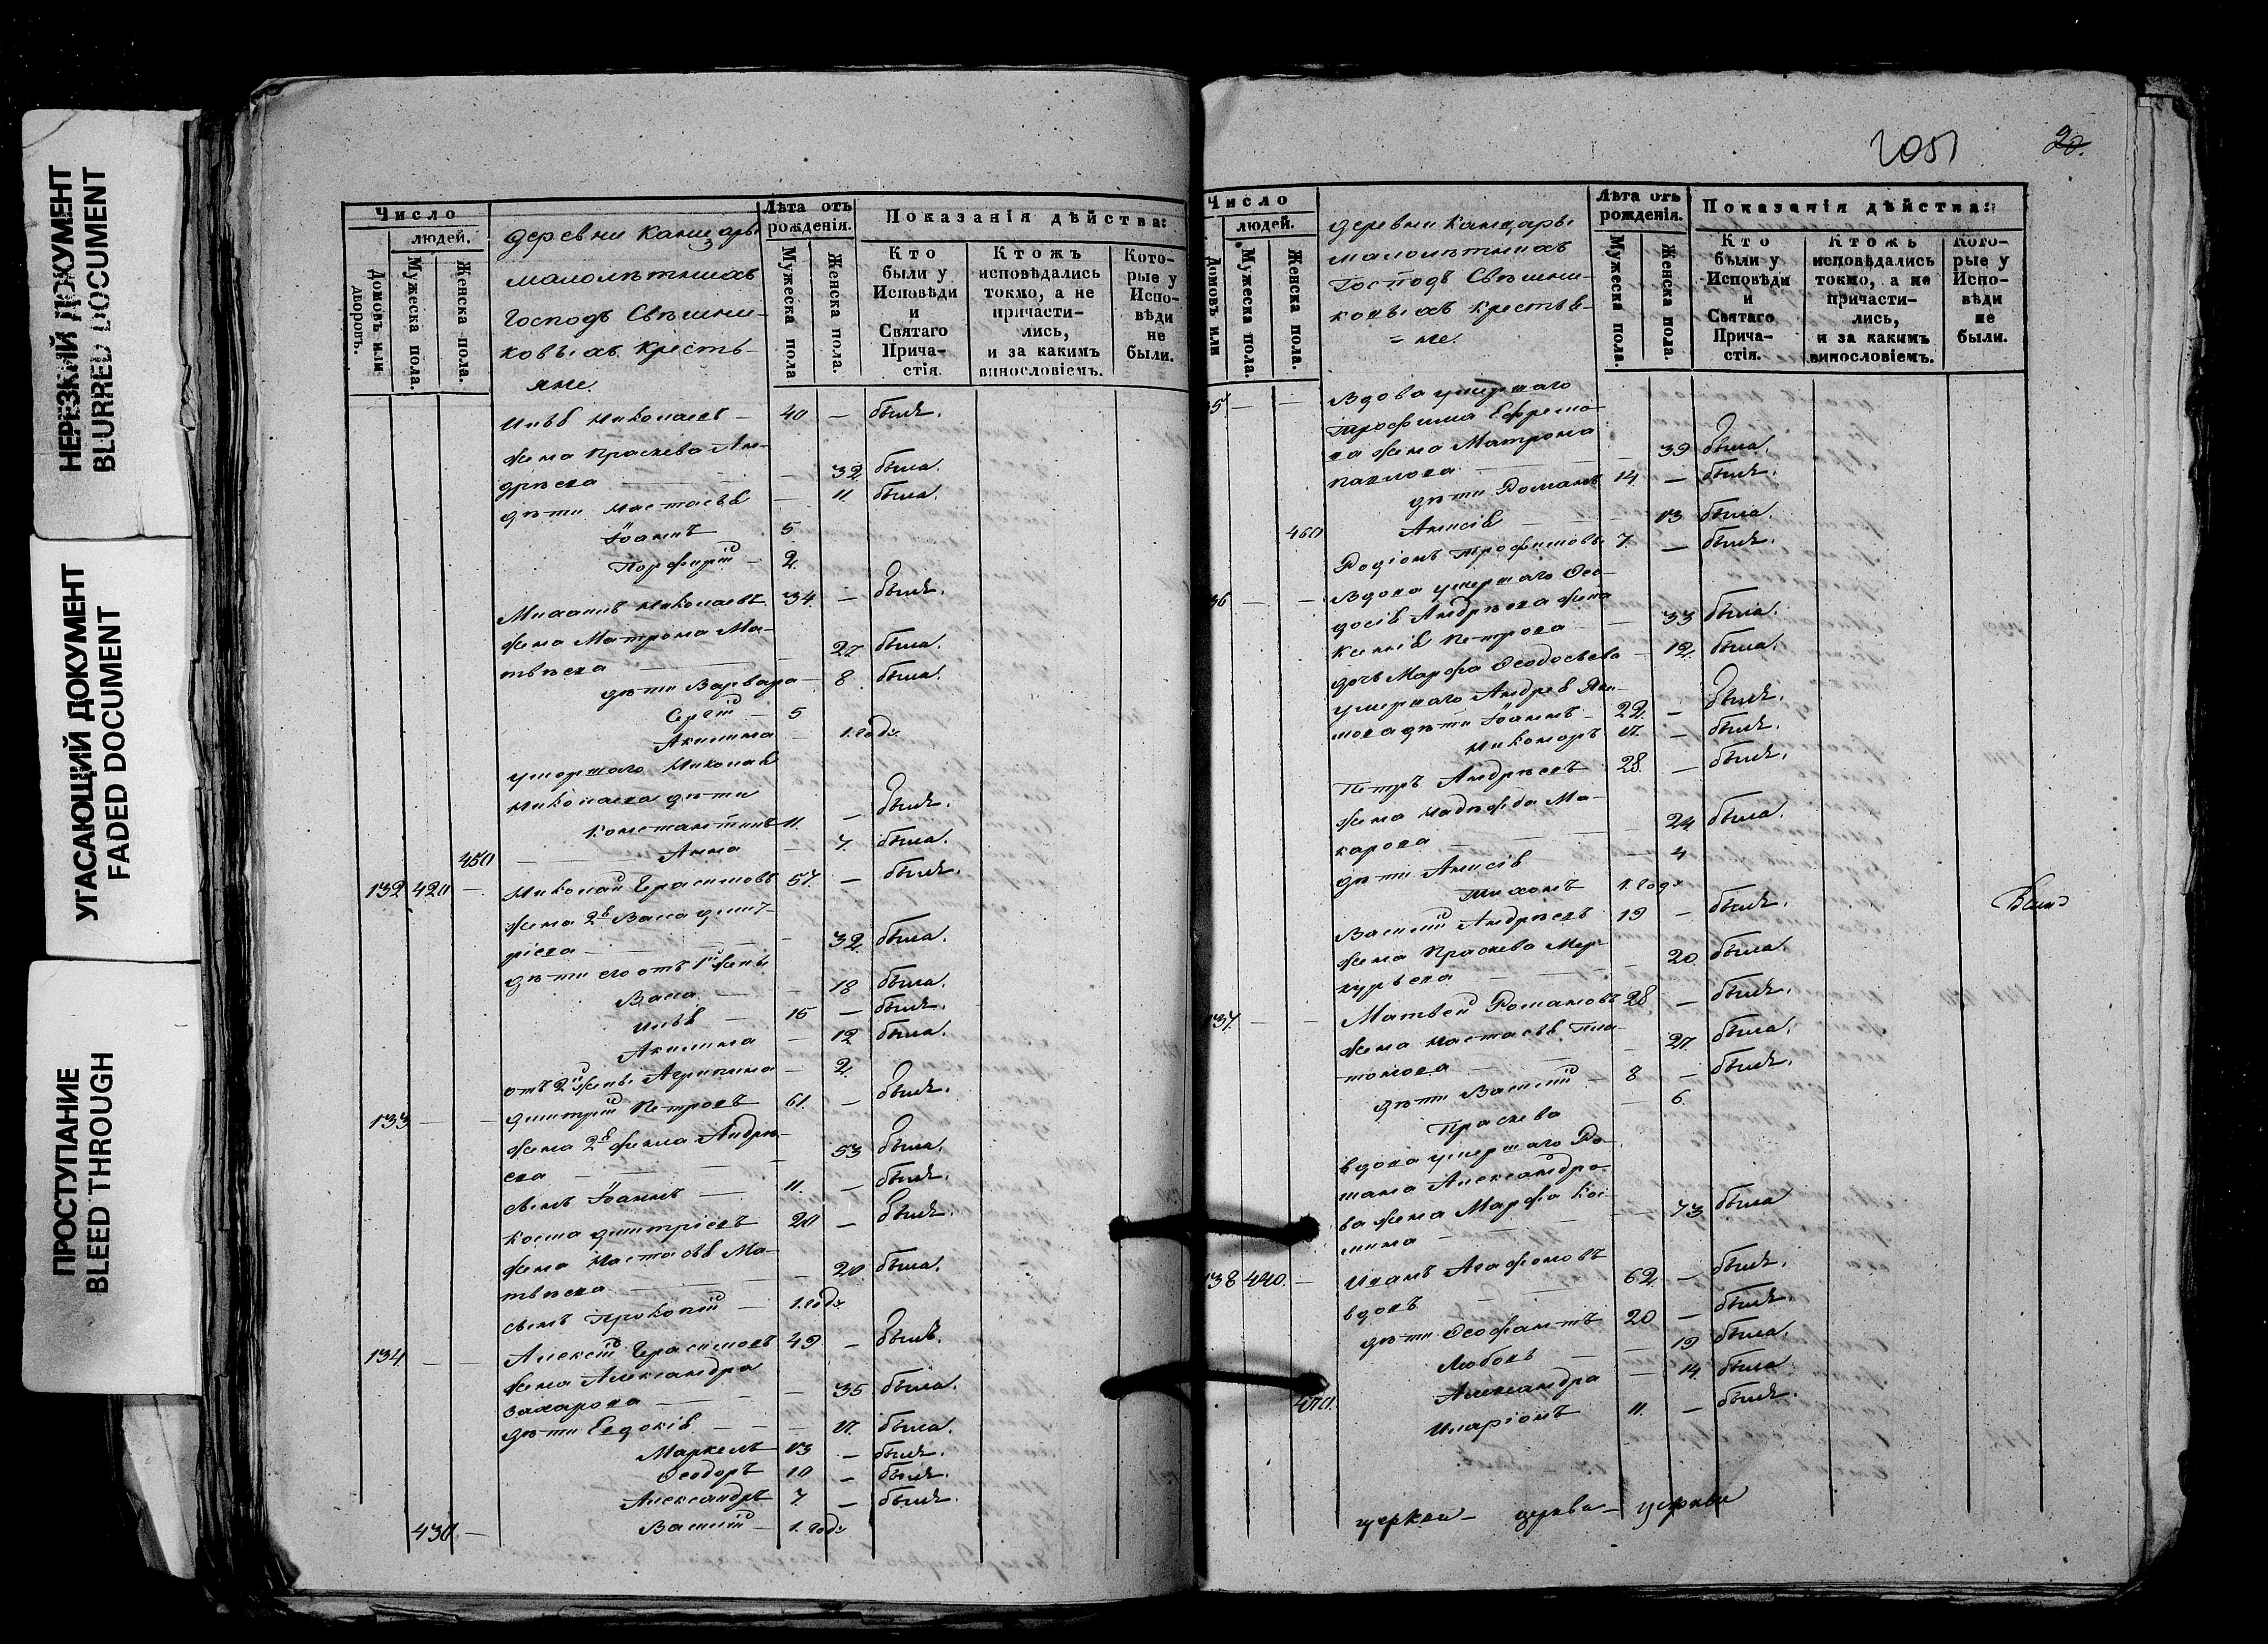 НЕРЕЗКИЙ ДОКУМЕНТ
BLURRED DOCUMENT
УГАСАЮЩИЙ ДОКУМЕНТ
FADED DOCUMENT
ПРОСТУПАНИЕ
BLEED THROUGH
Число
людей.
Домовъ или дворовъ.
Мужеска пола.
Женска пола.
деревни
малолѣтныхъ
Господъ Свѣшни-
ковыхъ кресть-
яне
Лѣта отъ рожденія.
Мужеска пола
Женска пола.
Показанія дѣйства:
Кто были у Исповѣди и Святаго Прича- стія.
Ктожъ исповѣдались токмо, а не причасти- лись, и за какимъ винословіемъ.
Кото- рые у Испо- вѣди не были.
Илья Николаевъ — 40 — былъ.
жена Праскева Ан-
дрѣева — — 32 была.
дѣти Настасья — 11 была.
Іоаннъ 5
Порфирій — 2.
Михаилъ Николаевъ 34. — былъ.
жена Матрона Ма-
твѣева — — 27 была.
дѣти Варвара — 8. была.
Сергій — 5
Акилина — 1. годъ
умершаго Николая
Николаева дѣти
Константинъ 11. — былъ.
450 Анна — 7. была.
132 420 — Николай Герасимовъ 57. — былъ.
жена 2я Васса Дмит-
ріева — — 32. была.
дѣти его отъ 1й жены
Васса — — 18 была.
Илья — 15 — былъ.
Акилина — 12 была.
отъ 2й жены Агрипина — 2.
133 — — Дмитрій Петровъ 61. — былъ.
жена 2я Фекла Андрѣ-
ева — — 53 была.
сынъ Іоаннъ — 11. — былъ.
Косма Дмитріевъ 20 — былъ.
жена Настасья Ма-
твѣева — — 20. была.
сынъ Прокопій — 1. годъ
134 — — Алексій Герасимовъ 49 — былъ.
жена Александра
Захарова — — 35 была.
дѣти Евдокія — — 17. была.
Маркелъ 13 — былъ.
Ѳеодоръ 10 — былъ.
Александръ 7. — былъ.
430 — Василій — 1. годъ
2051
20.
Число
людей.
Домовъ или
Мужеска пола.
Женска пола.
деревни
малолѣтныхъ
Господъ Свѣшни-
ковыхъ крестья-
= не.
Лѣта отъ рожденія.
Мужеска пола.
Женска пола.
Показанія дѣйства:
Кто были у Исповѣди и Святаго Прича- стія.
Ктожъ исповѣдались токмо, а не причасти- лись, и за какимъ винословіемъ.
Кото- рые у Испо- вѣди не были.
35 — — Вдова умершаго
Трофима Ефремо-
ва жена Матрона
Павлова — — 39 была.
дѣти Романъ 14. — былъ.
460 Анисія — — 13 была.
Родіонъ Трофимовъ 7. — былъ.
36 — — Вдова умершаго Ѳео-
досія Андрѣева жена
Ксенія Петрова — — 33 была.
дочь Марфа Ѳеодосьева — 12. была.
умершаго Андрея
дѣти Іоаннъ — 22. — былъ.
Никоноръ 17. — былъ.
Петръ Андрѣевъ 28. — былъ.
жена Надежда Ма-
карова — — 24 была.
дѣти Анисія — 4
Тихонъ 1. годъ
Василій Андрѣевъ 19 — былъ.
жена Праскева Мер-
курьева — — 20. была.
137. — — Матвей Романовъ 28 — былъ.
жена Настасья Пла-
тонова — — 27. была.
дѣти Василій — 8 — былъ.
Праскева — 6.
вдова умершаго Ро-
мана Александро-
ва жена Марфа Кос-
мина — — 73 была
138 440. — Иванъ Агафоновъ
вдовъ — 62. — былъ.
дѣти Ѳеофантъ 20 — былъ.
Любовь — — 19 была.
Александра — 14. была.
470. Иларіонъ 11. — былъ.
церкви — церкви — церкви